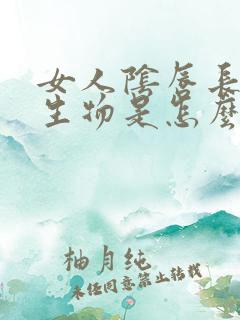 女人陰唇長
生物是怎麼
柚月纯
未经同意禁止转载